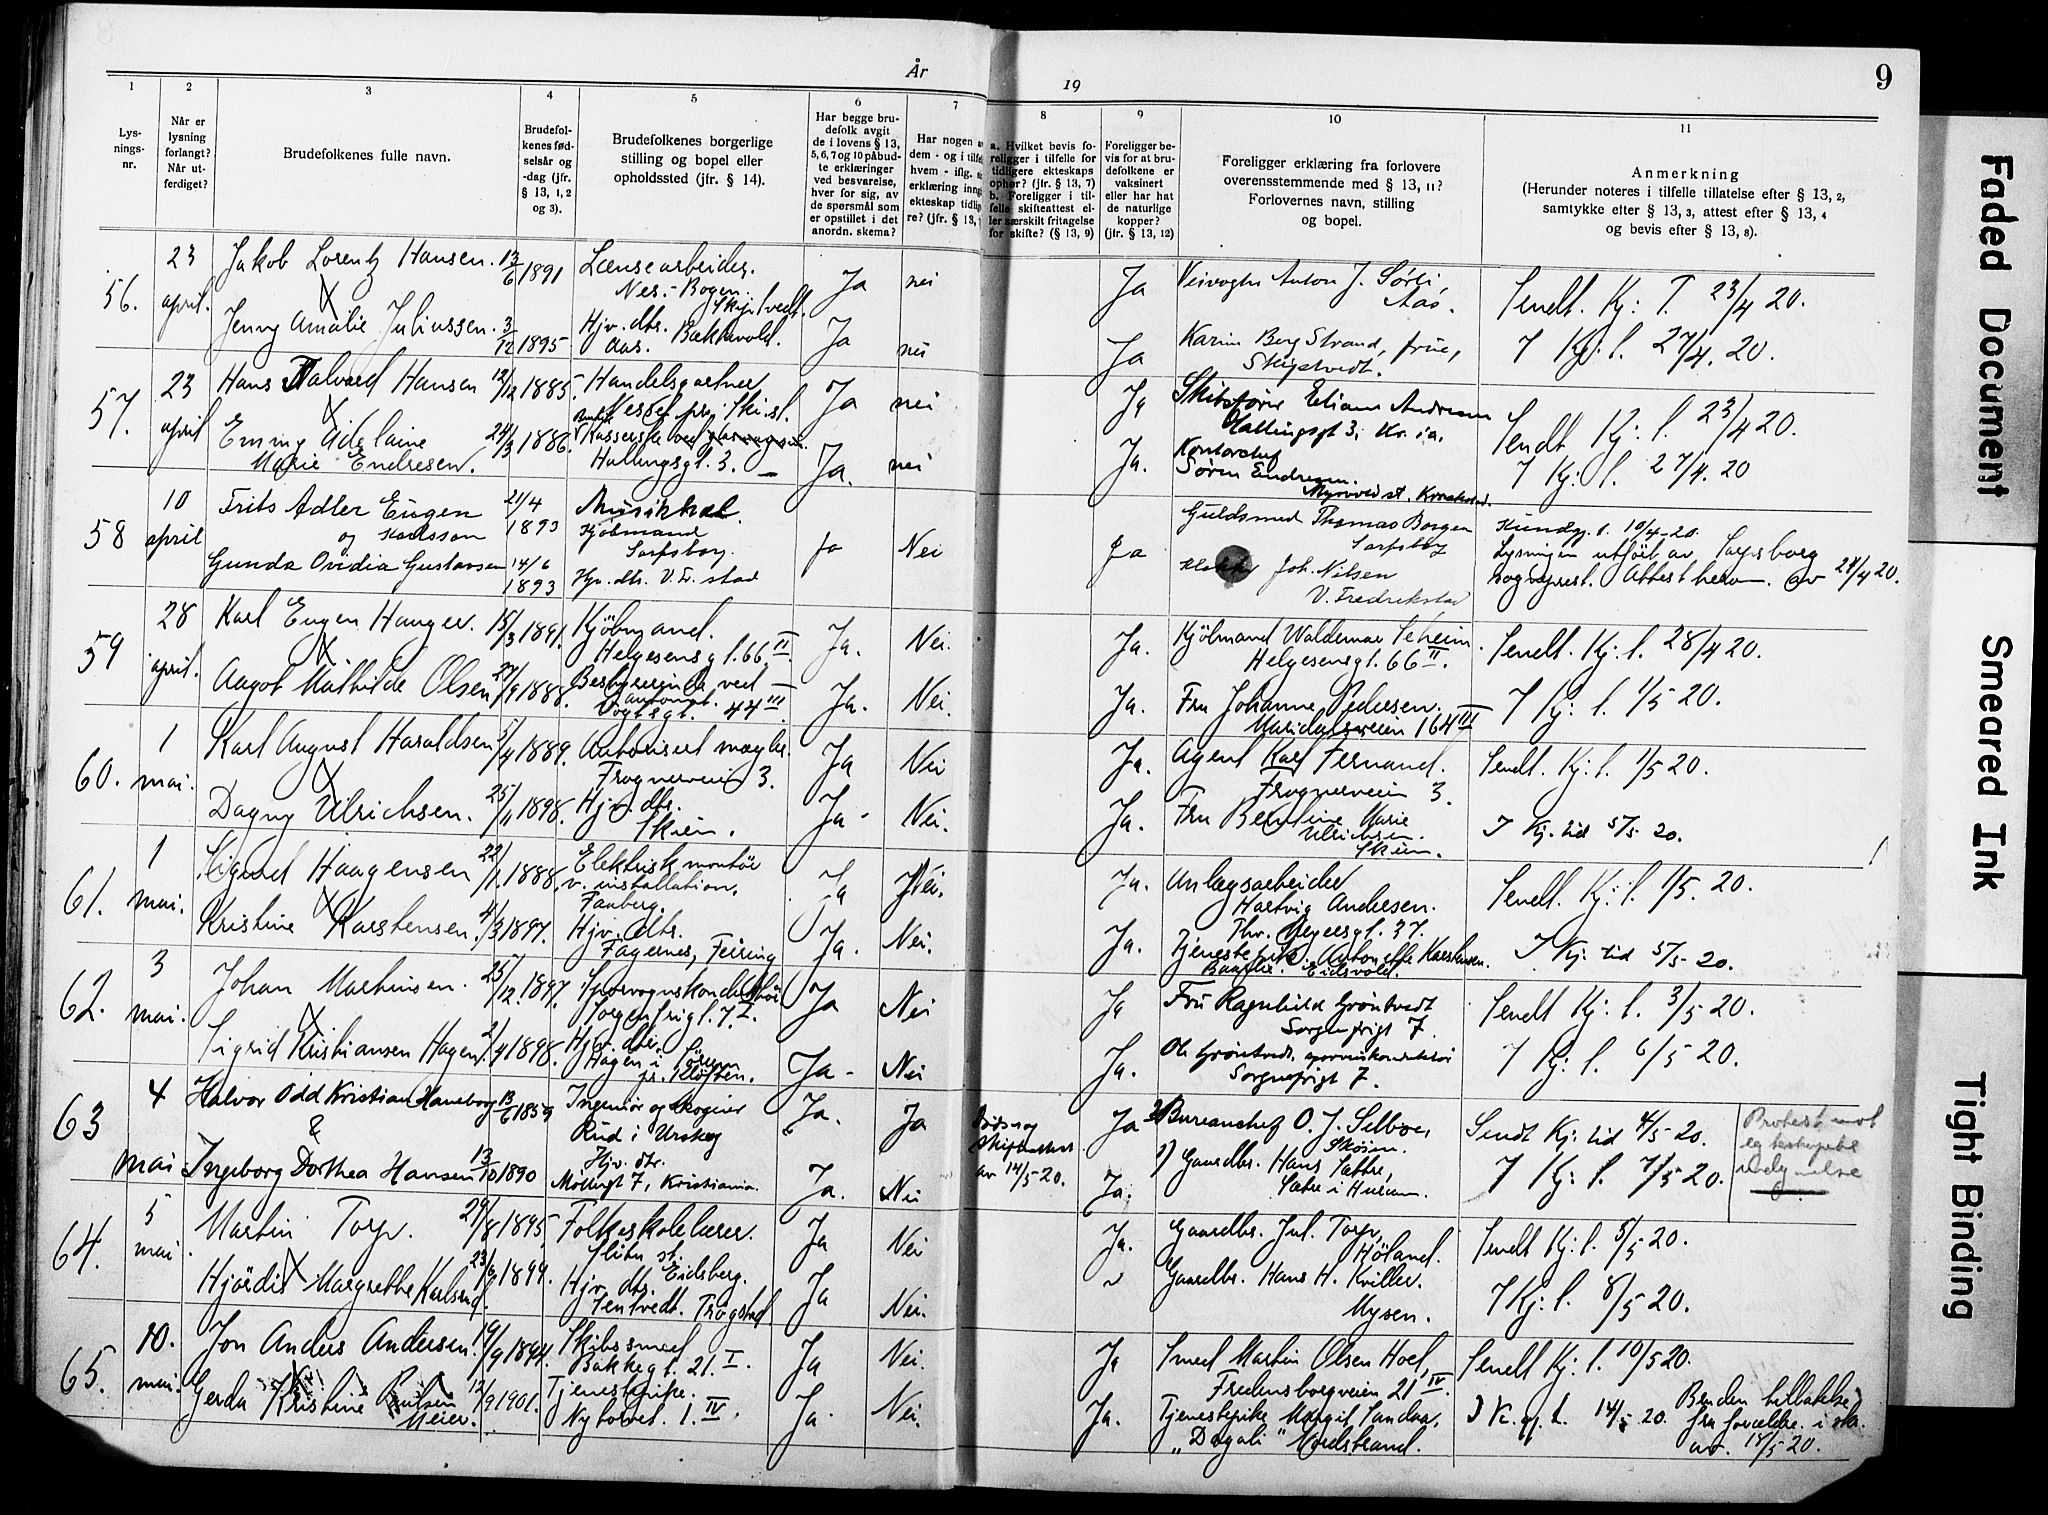 År
19
9
1
2
3
4
5
6
7
8
9
10
11
Lys-
nings-
nr.
Når er
lysning
forlangt?
Når ut-
ferdiget?
Brudefolkenes fulle navn.
Brudefol-
kenes fød-
selsår og
-dag (jfr.
§ 13, 1, 2
og 3).
Brudefolkenes borgerlige
stilling og bopel eller
opholdssted (jfr. § 14).
Har begge bru-
defolk avgit
de i lovens § 13,
5, 6, 7 og 10 påbud-
te erklæringer
ved besvarelse,
hver for sig, av
de spørsmål som
er opstillet i det
anordn. skema?
Har nogen a
dem - og i tilfe
hvem - iflg. si
erklæring inng
ekteskap tidlig
re? (jfr. § 13,
a. Hvilket bevis fo-
religger i tilfelle for
tidligere ekteskaps
ophør? (jfr. § 13, 7)
b. Foreligger i til-
felle skifteattest el-
ler særskilt fritagelse
for skifte? (§ 13, 9)
Foreligger be-
vis for at bru-
defolkene er
vaksinert
eller har hat
de naturlige
kopper?
(jfr. § 13, 12)
Foreligger erklæring fra forlovere
overensstemmende med § 13, 11?
Forlovernes navn, stilling
og bopel.
Anmerkning
(Herunder noteres i tilfelle tillatelse efter § 13, 2,
samtykke efter § 13, 3, attest efter § 13, 4
og bevis efter § 13, 8).
56.
23
april.
Jakob Lorentz Hansen. 13/6 1891
Lænsearbeider.
Nes - Bogen.
Skiptvedt.
Ja nei
Ja
Veivogter Anton J. Sørli,
Aas.
Sendt. Kj: T. 23/4 20.
Jenny Amalie Juliussen. 3/12 1895
Hjv. dtr. Bakkevold.
Aas.
Ja nei
Ja
Karin Berg Strand, frue,
Skiptvedt.
I Kj. l. 27/4. 20.
57.
23
april
Hans Halvard Hansen 12/12 1885
Handelsgartner
Ja nei
Ja
Hallingsgt 3, Kr. ia.
Sendt Kj. l. 23/4 20.
Emmy Adelaine
Marie Endresen. 24/3 1886.
Hallingsgt. 3.
Ja. nei
Ja.
Kontorchef
Søren Endresen.
I Kj. l. 27/4. 20
58
10
april
Frits Adler Eugen
og Karlsson
21/4
1893
Musikhal.
Kjøbmand
Sarpsborg.
Ja Nei
Ja
Guldsmed Thomas Borgen
Sarpsborg
Kundgj. l. 10/4-20.
Lysningen utført av Sarpsborg
sogneprest. Attest herom av 24/4 20.
Gunda Ovidia Gustavsen 14/6
1893
Hjv. dtr. V. Fr. stad
Joh. Nilsen
V. Fredrikstad
59
28
april.
Karl Eugen Hauger. 15/3 1891.
Kjøbmand.
Helgesensgt. 66 II.
Ja. Nei.
Ja.
Kjøbmand Waldemar Seheim.
Helgesensgt. 66 II.
Sendt. Kj. l. 28/4 20.
Aagot Mathilde Olsen 27/9 1888.
Bestyrerinde ved
automat.
Vogtsgt. 44 III
Ja. Nei.
Ja.
Fru Johanne Pedersen.
Maridalsveien 164 III
I Kj: l. 1/5 20.
60.
1
mai.
Karl August Haraldsen 5/4 1889.
Autorisert mægler.
Frognerveien 3.
Ja Nei
Ja.
Agent Karl Fernand.
Frognerveien 3.
Sendt. Kj. l. 1/5 20.
Dagny Ulrichsen. 25/11 1898.
Hjv. dtr.
Skien.
Ja - Nei.
Ja.
Fru Berntine Marie
Ulrichsen.
Skien.
I Kj. tid 5/5 20.
61.
1
mai.
Sigurd Haagensen 22/1. 1888.
Elektriskmontør
v. installation.
Faaberg.
Ja Nei.
Ja.
Anlægsarbeider
Hartvig Andresen.
Thv. Meyersgt. 37.
Sendt. Kj. l. 1/5 20.
Kristine Karstensen. 4/3 1897.
Hjv. dtr.
Fagernes, Feiring
Ja. Nei.
Ja.
Tjenestepike Antonette Karstensen.
Eidsvold.
I Kj. tid 5/5 20.
62.
3
mai.
Johan Martinsen. 25/12. 1897.
Sporvognskonduktør
Sorgenfrigt. 7. I.
Ja Nei
Ja
Fru Ragnhild Grøntvedt
Sorgenfrigt 7.
Sendt Kj. l. 3/5 20.
Sigrid Kristiansen Hagen. 2/4 1898.
Hjv. dtr.
Hagen i Sørum
pr. Kløften.
Ja - Nei
Ja.
Ole Grøntvedt, sporveiskonduktør
Sorgenfrigt 7.
I Kj. l. 6/5 20.
63
4
mai
Halvor Odd Kristian Haneborg 13/6 1859
&
Ingeniør og skogeier
Rud i Urskog
Ja. Ja
Døds og
Skifteattest
av 14/5-20.
Ja
2) Bureauchef O. J. Selboe,
Skøien.
Sendt Kj. tid 4/5-20.
Protest mot
Ingeborg Dorthea Hansen 13/10 1890
Hjv. dtr.
Møllergt 7, Kristiania.
Ja. Nei
Ja.
1) Gaardbr. Hans Sætre,
Sætre i Hurum.
I Kj. l. 7/5 20.
64.
5
mai.
Martin Torp. 29/8 1895.
Folkeskolelærer.
Slitu st.
Eidsberg.
Ja Nei
Ja.
Gaardbr. Jul. Torp,
Høland.
Sendt Kj. l. 5/5 20.
Hjørdis Margrethe Karlsrud. 23/6 1899.
Hjv. dtr.
Sentvedt. Trøgstad
Ja Nei.
Gaardbr. Hans H. Kviller.
Mysen.
I Kj. l. 8/5 20.
65.
10.
mai.
Jon Anders Andersen. 19/9 1894.
Skibssmed
Bakkegt. 21 I.
Ja Nei.
Ja
Smed Martin Olsen Hoel,
Fredensborgveien 21 IV.
Sendt Kj. l. 10/5 20.
Gerda Kristine
Meier. 12/9 1901.
Tjenestepike.
Nytorvet. 1. IV.
Ja. Nei.
Ja.
Tjenestepike Margit Sandaa,
„Dagali" Nordstrand.
14/5 20.
Bruden tillatelse
fra forældre i skr.
av. 18/5 20.
Faded Document
Smeared Ink
Tight Binding